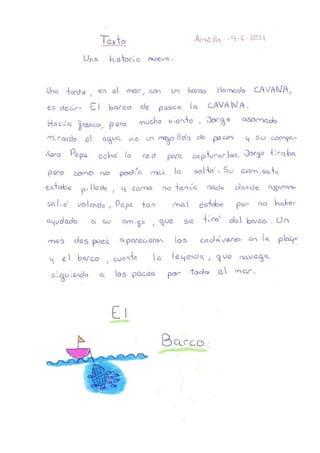 Texto
Armilla -9-6-2011
Una historia nueva.
Una tarde, en el mar, con un barco llamado CAVANA,
es decir: El barco de pesca la CAVANA.
Hacía fresco, pero mucho viento. Jorge asomado
mirando el agua vio un mogollón de peces y su compa-
ñero Pepe echó la red para capturarlos. Jorge tiraba
pero como no podía más la soltó. Su camiseta
estaba pillada, y como no tenía nada donde agarrarse
salió volando, Pepe tan mal estaba por no haber
ayudado a su amigo, que se tiró del barco. Un
mes después aparecieron los cadáveres en la playa
y el barco, cuenta la leyenda, que navega
siguiendo a los peces por todo el mar.
El
Barco.